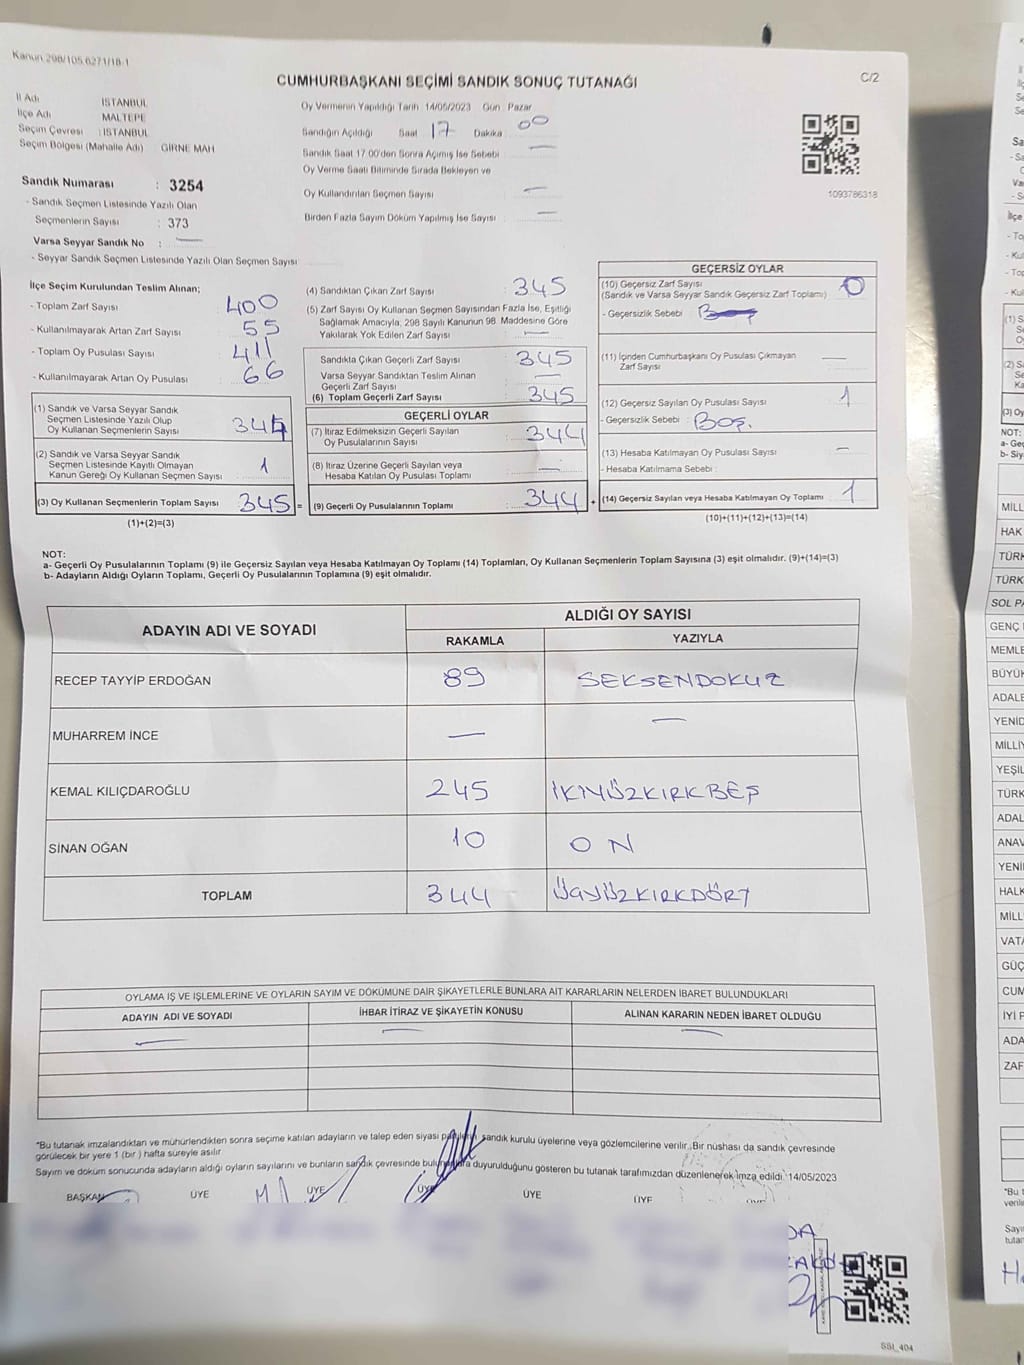 Kanun 298/105,6271/18-1
CUMHURBAŞKANI SEÇİMİ SANDIK SONUÇ TUTANAĞI
C/2
İl Adı İSTANBUL
İlçe Adı MALTEPE
Seçim Çevresi : İSTANBUL
Seçim Bölgesi (Mahalle Adı) GİRNE MAH
Sandık Numarası : 3254
- Sandık Seçmen Listesinde Yazılı Olan
Seçmenlerin Sayısı : 373
Varsa Seyyar Sandık No : —
- Seyyar Sandık Seçmen Listesinde Yazılı Olan Seçmen Sayısı
Oy Vermenin Yapıldığı Tarih : 14/05/2023 Gün : Pazar
Sandığın Açıldığı Saat 17 Dakika : 00
Sandık Saat 17.00'den Sonra Açılmış İse Sebebi : —
Oy Verme Saati Bitiminde Sırada Bekleyen ve
Oy Kullandırılan Seçmen Sayısı : —
Birden Fazla Sayım Döküm Yapılmış İse Sayısı : —
1093786318
İlçe Seçim Kurulundan Teslim Alınan;
- Toplam Zarf Sayısı : 400
- Kullanılmayarak Artan Zarf Sayısı : 55
- Toplam Oy Pusulası Sayısı : 411
- Kullanılmayarak Artan Oy Pusulası : 66
(1) Sandık ve Varsa Seyyar Sandık
Seçmen Listesinde Yazılı Olup
Oy Kullanan Seçmenlerin Sayısı 344
(2) Sandık ve Varsa Seyyar Sandık
Seçmen Listesinde Kayıtlı Olmayan
Kanun Gereği Oy Kullanan Seçmen Sayısı 1
(3) Oy Kullanan Seçmenlerin Toplam Sayısı 345 =
(1)+(2)=(3)
(4) Sandıktan Çıkan Zarf Sayısı : 345
(5) Zarf Sayısı Oy Kullanan Seçmen Sayısından Fazla İse, Eşitliği
Sağlamak Amacıyla, 298 Sayılı Kanunun 98. Maddesine Göre
Yakılarak Yok Edilen Zarf Sayısı : —
Sandıkta Çıkan Geçerli Zarf Sayısı : 345
Varsa Seyyar Sandıktan Teslim Alınan
Geçerli Zarf Sayısı : —
(6) Toplam Geçerli Zarf Sayısı : 345
GEÇERLİ OYLAR
(7) İtiraz Edilmeksizin Geçerli Sayılan
Oy Pusulalarının Sayısı : 344
(8) İtiraz Üzerine Geçerli Sayılan veya
Hesaba Katılan Oy Pusulası Toplamı : —
(9) Geçerli Oy Pusulalarının Toplamı : 344 +
GEÇERSİZ OYLAR
(10) Geçersiz Zarf Sayısı : 0
(Sandık ve Varsa Seyyar Sandık Geçersiz Zarf Toplamı)
- Geçersizlik Sebebi : Boş
(11) İçinden Cumhurbaşkanı Oy Pusulası Çıkmayan
Zarf Sayısı : —
(12) Geçersiz Sayılan Oy Pusulası Sayısı : 1
- Geçersizlik Sebebi : Boş.
(13) Hesaba Katılmayan Oy Pusulası Sayısı : —
- Hesaba Katılmama Sebebi :
(14) Geçersiz Sayılan veya Hesaba Katılmayan Oy Toplamı : 1
(10)+(11)+(12)+(13)=(14)
NOT:
a- Geçerli Oy Pusulalarının Toplamı (9) ile Geçersiz Sayılan veya Hesaba Katılmayan Oy Toplamı (14) Toplamları, Oy Kullanan Seçmenlerin Toplam Sayısına (3) eşit olmalıdır. (9)+(14)=(3)
b- Adayların Aldığı Oyların Toplamı, Geçerli Oy Pusulalarının Toplamına (9) eşit olmalıdır.
ADAYIN ADI VE SOYADI
ALDIĞI OY SAYISI
RAKAMLA YAZIYLA
RECEP TAYYİP ERDOĞAN 89 SEKSENDOKUZ
MUHARREM İNCE — —
KEMAL KILIÇDAROĞLU 245 İKİYÜZKIRKBEŞ
SİNAN OĞAN 10 ON
TOPLAM 344 ÜÇYÜZKIRKDÖRT
OYLAMA İŞ VE İŞLEMLERİNE VE OYLARIN SAYIM VE DÖKÜMÜNE DAİR ŞİKAYETLERLE BUNLARA AİT KARARLARIN NELERDEN İBARET BULUNDUKLARI
ADAYIN ADI VE SOYADI İHBAR İTİRAZ VE ŞİKAYETİN KONUSU ALINAN KARARIN NEDEN İBARET OLDUĞU
— — —
"Bu tutanak imzalandıktan ve mühürlendikten sonra seçime katılan adayların ve talep eden siyasi sandık kurulu üyelerine veya gözlemcilerine verilir. Bir nüshası da sandık çevresinde
görülecek bir yere 1 (bir) hafta süreyle asılır
Sayım ve döküm sonucunda adayların aldığı oyların sayılarını ve bunların sandık çevresinde duyurulduğunu gösteren bu tutanak tarafımızdan düzenlenerek imza edildi. 14/05/2023
BAŞKAN ÜYE ÜYE ÜYE ÜYE ÜYE ÜYE
SSI_404
MİLL
HAK
TÜRK
TÜRK
SOL PA
GENÇ
MEMLE
BÜYÜK
ADALE
YENİD
MİLLİY
YEŞİL
TÜRK
ADAL
ANAV
YENİ
HALK
MİLL
VATA
GÜÇ
CUM
İYİ P
ADA
ZAF